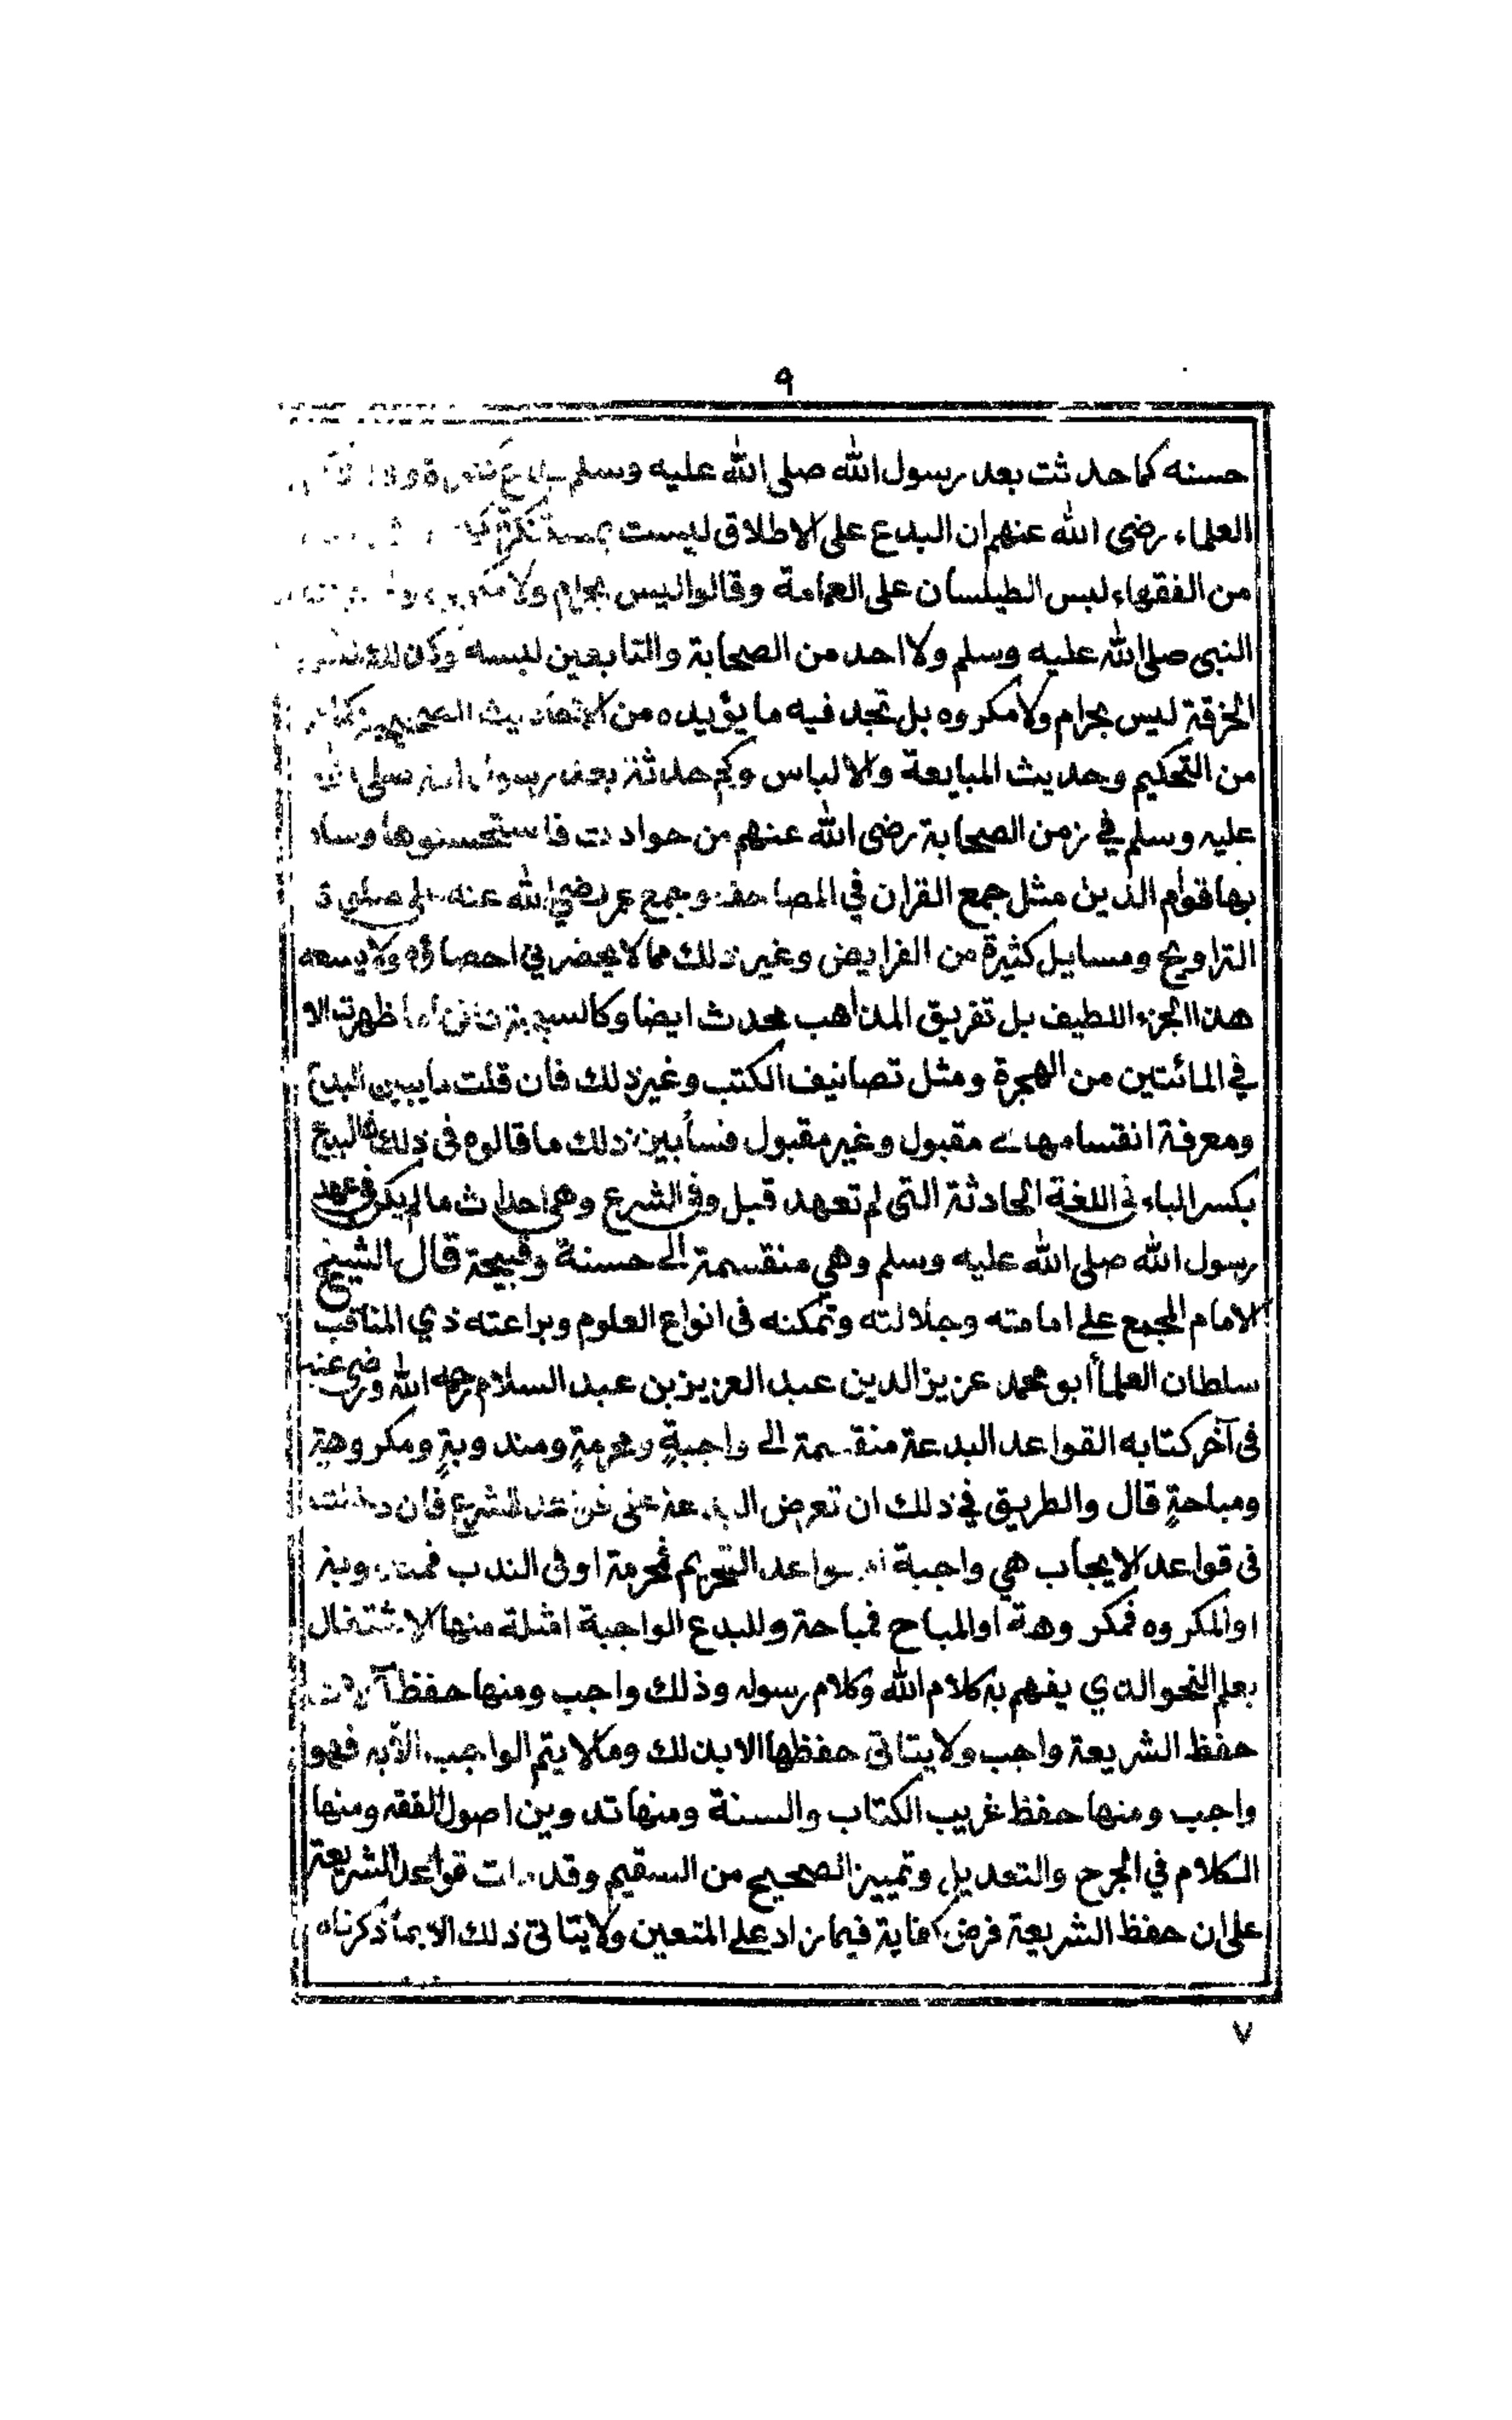 ٩
حسنه كما حدثت بعد رسول الله صلى الله عليه وسلم
العلماء رضى الله عنهم ان البدع على الاطلاق ليست
من الفقهاء لبس الطيلسان على العمامة وقالوا ليس بحرام ولا
النبى صلى الله عليه وسلم ولا احد من الصحابة والتابعين لبسه
الخرقة ليس بحرام ولا مكروه بل تجد فيه ما يؤيده من الاحاديث الصحيحة
من التحكيم وحديث المبايعة والالباس وكم حدثت بعد رسول الله صلى الله
عليه وسلم في زمن الصحابة رضى الله عنهم من حوادث فاستحسنوها وساد
بها قوام الدين مثل جمع القران في المصاحف وجمع عمر رضي الله عنه الى صلوة
التراويح ومسايل كثيرة من الفرايض وغير ذلك مما لا يحضرني احصاؤه ولا يسعه
هذا الجزء اللطيف بل تفريق المذاهب محدث ايضا ظهرت الا
في المائتين من الهجرة ومثل تصانيف الكتب وغير ذلك فان قلت البدع
ومعرفة انقسامها مقبول وغير مقبول فسأبين ذلك ما قالوه فى ذلك فالبدع
بكسر الباء فى اللغة الحادثة التى لم تعهد قبل وفى الشرع وهى احداث ما لم يكن فى عهد
رسول الله صلى الله عليه وسلم وهي منقسمة الى حسنة وقبيحة قال الشيخ
الامام المجمع على امامته وجلالته وتمكنه فى انواع العلوم وبراعته ذي المناقب
سلطان العلمأ أبو محمد عزيز الدين عبد العزيز بن عبد السلام رحمه الله ورضى عنه
فى آخر كتابه القواعد البدعة منقسمة الى واجبةٍ ومحرمةٍ ومندوبةٍ ومكروهةٍ
ومباحةٍ قال والطريق في ذلك ان تعرض البدعة على قواعد الشرع فان دخلت
فى قواعد الايجاب هي واجبة او قواعد التحريم فمحرمة او فى الندب فمندوبة
او المكروه فمكروهة او المباح فمباحة وللبدع الواجبة امثلة منها الاشتغال
بعلم النحو الذي يفهم به كلام الله وكلام رسوله وذلك واجب ومنها حفظ
حفظ الشريعة واجب ولا يتاتى حفظها الا بذلك وما لا يتم الواجب الّا به فهو
واجب ومنها حفظ غريب الكتاب والسنة ومنها تدوين اصول الفقه ومنها
الكلام في الجرح والتعديل وتمييز الصحيح من السقيم وقد دلت قواعد الشريعة
على ان حفظ الشريعة فرض كفاية فيما زاد على المتعين ولا يتاتى ذلك الا بما ذكرناه
٧